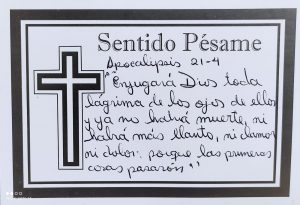 Sentido Pésame
Apocalipsis 21-4
"Enjugará Dios toda
lágrima de los ojos de ellos
y ya no habrá muerte, ni
habrá más llanto, ni clamor
ni dolor: porque las primeras
cosas pasaron"